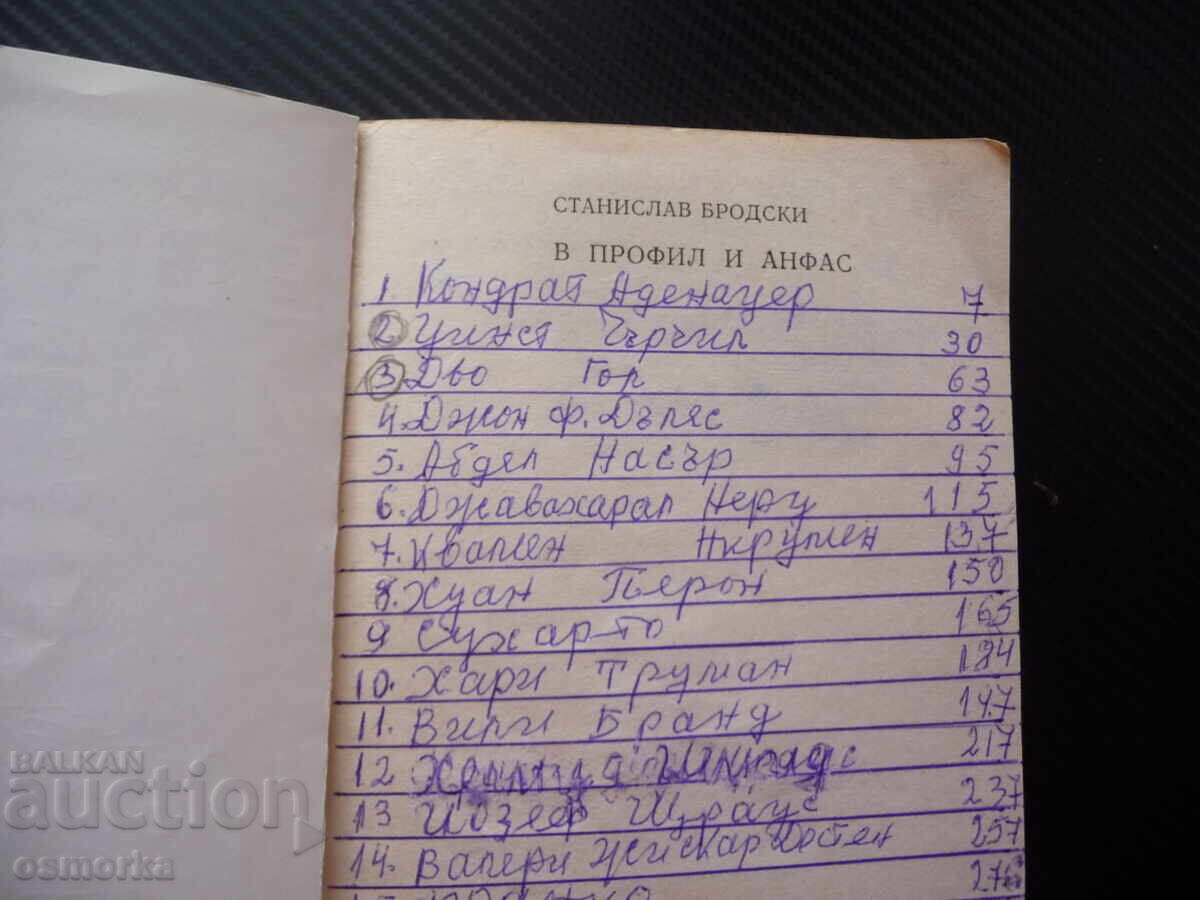 СТАНИСЛАВ БРОДСКИ
В ПРОФИЛ И АНФАС
1 Кондрат Аденауер 7
2 Уинст Чърчил 30
3. Дьо Гол 63
4. Джон Ф. Дълес 82
5. Абдел Насър 95
6. Джавахарал Неру 115
7. Квамен Нкрумен 137
8. Хуан Перон 150
9 Сухарто 165
10. Хари Труман 184
11. Вили Бранд 147
12 217
13 Йозеф Щраус 237
14. Валери Жискар Дестен 257
276
BALKAN
auction
osmorka